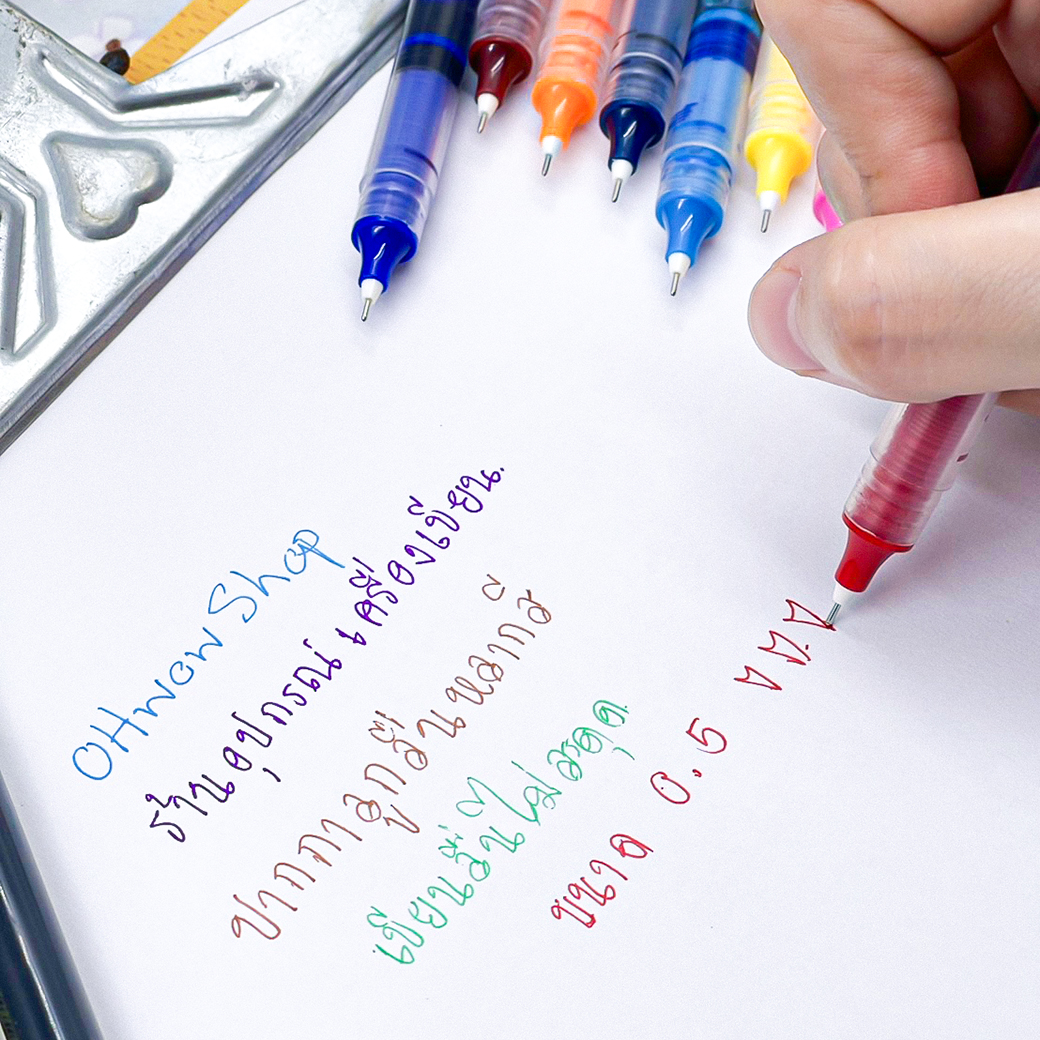 OHwow Shop
ร้านอุปกรณ์เครื่องเขียน.
ปากกาลูกลื่นหลากสี
เขียนลื่นไม่สะดุด.
ขนาด 0.5 มม.